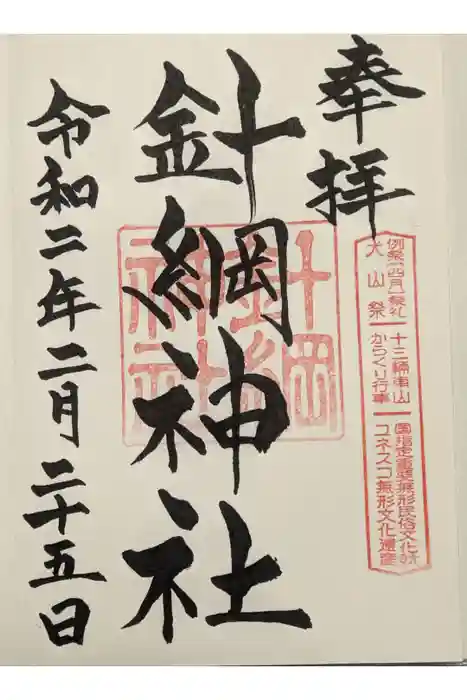 奉拝
例祭(四月)祭礼
犬山祭
十三輌車山
からくり行事
国指定重要無形民俗文化財
ユネスコ無形文化遺産
針綱神社
針綱
神社
令和二年二月二十五日